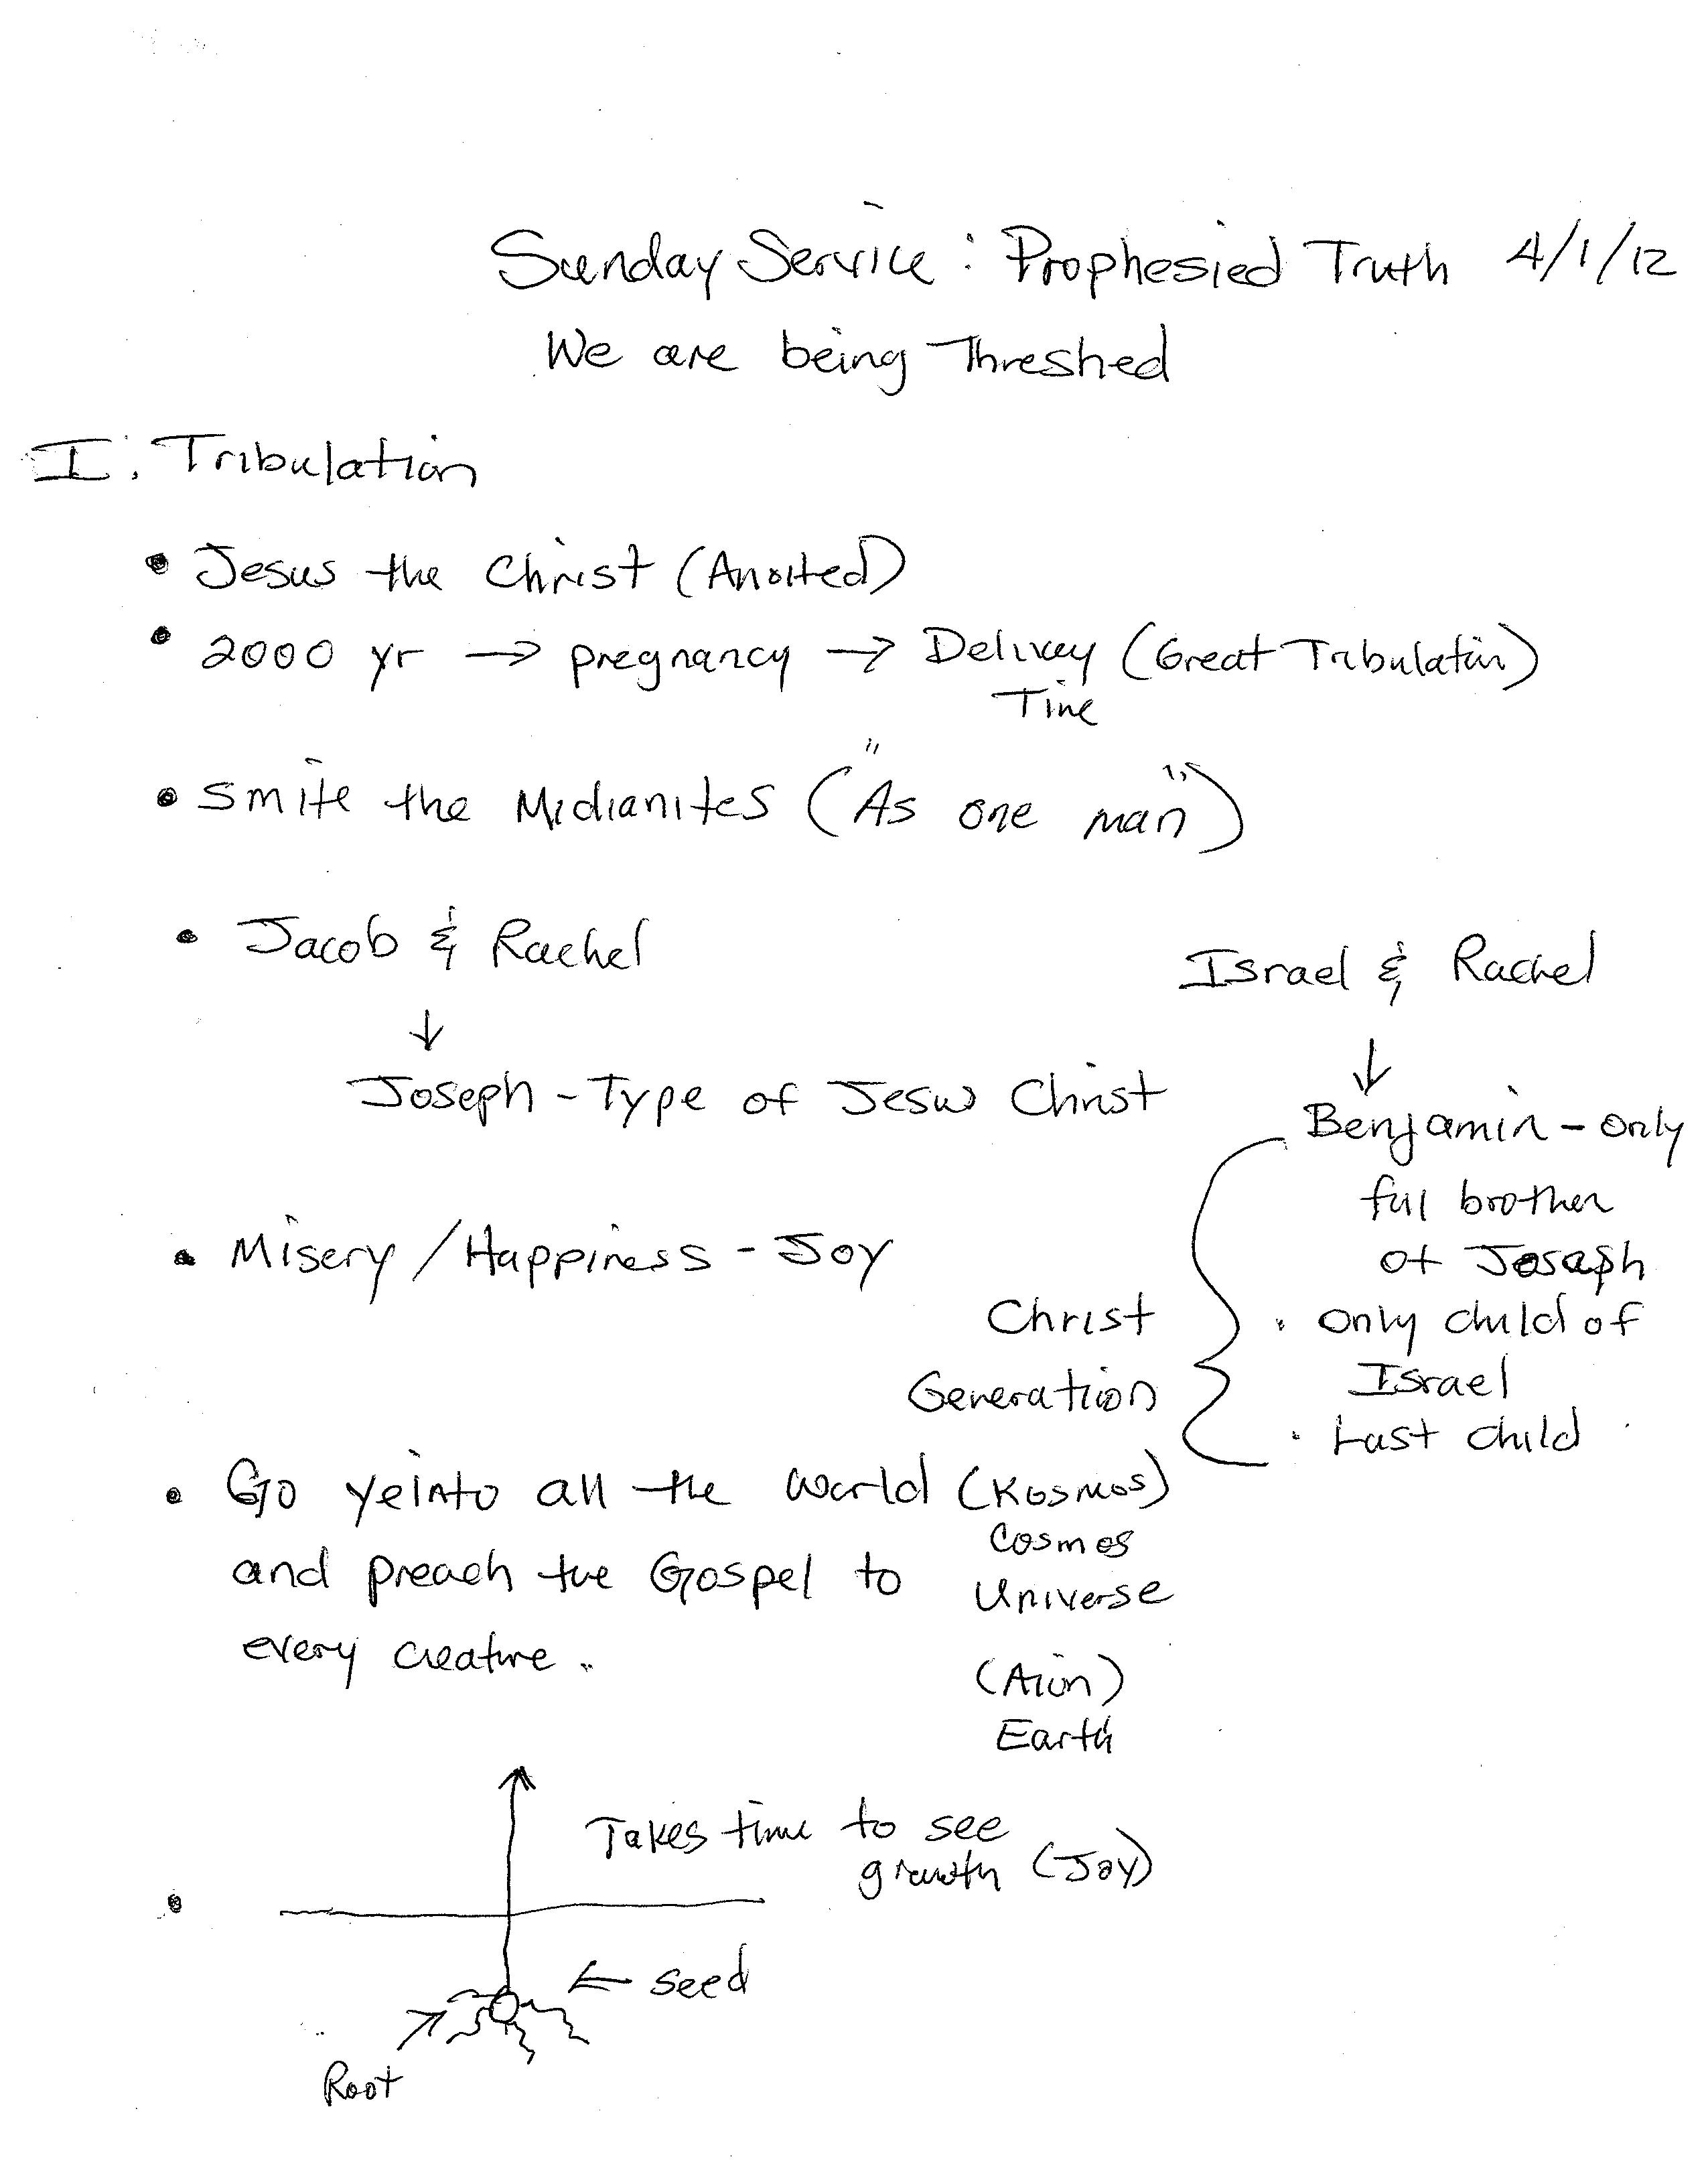 Sunday Service: Prophesied Truth 4/1/12
We are being Threshed
I. Tribulation
• Jesus the Christ (Anoited)
• 2000 yr → pregnancy → Delivey (Great Tribulatin)
Time
• Smite the Midianites ("As one man")
• Jacob & Rachel
↓
Joseph - Type of Jesus Christ
Israel & Rachel
↓
Benjamin - only
full brother
of Joseph
• only child of
Israel
• Last child
Christ
Generation
• Misery / Happiness - Joy
• Go ye into all the world (Kosmos)
Cosmos
and preach the Gospel to
Universe
every creature.
(Aion)
Earth
• Takes time to see
growth (Joy)
← seed
Root